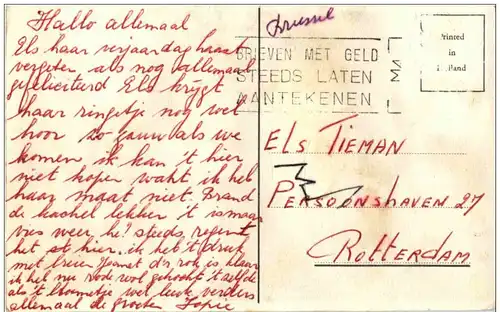 Hallo allemaal
Els haar verjaardag haast
vergeten als nog allemaal
gefeliciteerd Els krijgt
haar ringetje nog wel
hoor zo gauw als we
komen ik kan 't hier
niet kopen waht ik heb
haar maat niet Brand
de kachel lekker 't is maar
vies weer he! steeds regent
het st hier. ik heb 't druk
met breien Jeanet d'r rok is klaar
ik heb nu rode wol gekocht 't zelfde
als 't bloemetje wel leuk verders
allemaal de groeten Jopie
Brussel
BRIEVEN MET GELD
STEEDS LATEN
AANTEKENEN
Printed
in
Holland
ELS TIEMAN
PERSOONSHAVEN 27
ROTTERDAM